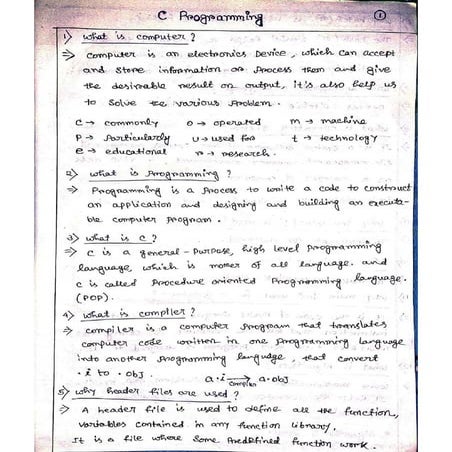 C Programming
①
1) what is computer ?
⇒ Computer is an electronics Device, which can accept
and store information or Process them and give
the desireable result on output, it's also help us
to solve the various Problem.
C → commonly    o → operated    m → machine
P → Particularly    u → used for    t → technology
e → educational    r → research.
2) what is Programming ?
⇒ Programming is a Process to write a code to construct
an application and designing and building an executa-
ble computer Program.
3) what is C ?
⇒ C is a general-Purpose, high level programming
language, which is mother of all language. and
C is called Procedure oriented Programming language.
(POP).
4) what is compiler ?
⇒ compiler is a computer Program that translates
computer code written in one programming language
into another programming language, that convert
.i to .obj.
a.i → a.obj
compiler
5) why header files are used ?
⇒ A header file is used to define all the function,
variables contained in any function library.
It is a file where some Predefined function work.